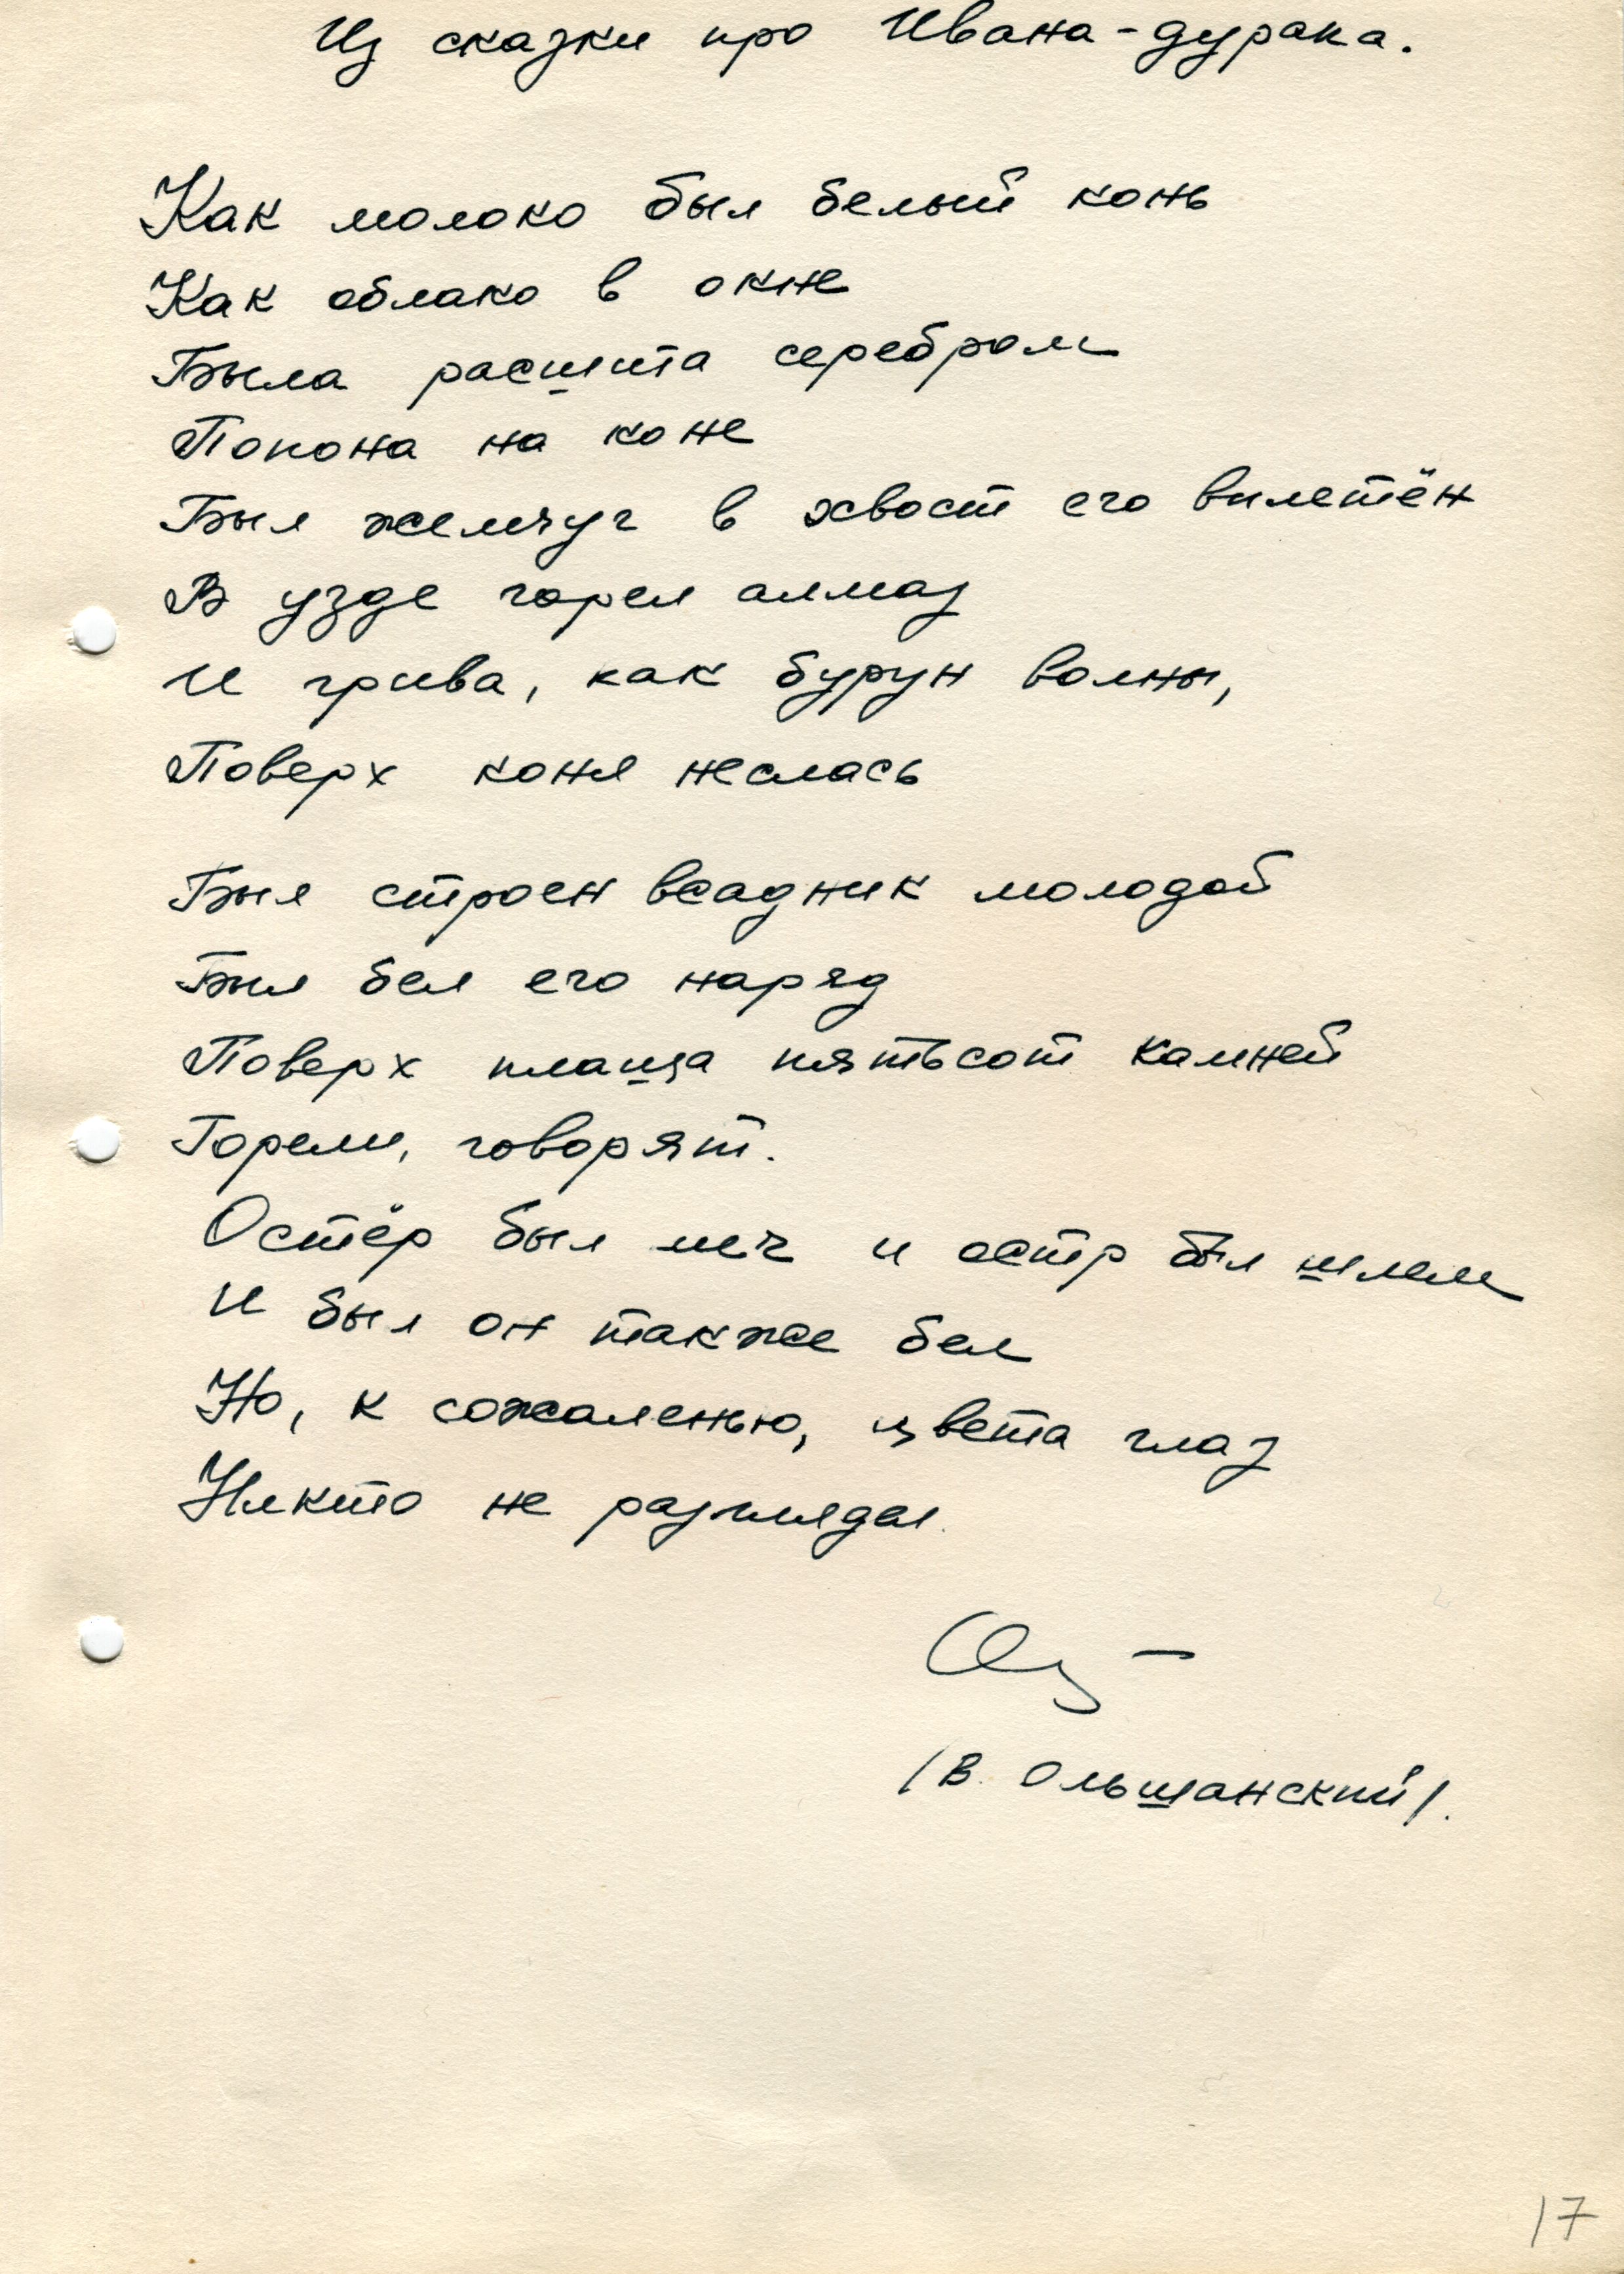 Из сказки про Ивана-дурака.
Как молоко был белый конь
Как облако в окне
Была расшита серебром
Попона на коне
Был жемчуг в хвост его вплетён
В узде горел алмаз
И грива, как бурун волны,
Поверх коня неслась
Был строен всадник молодой
Был бел его наряд
Поверх плаща пятьсот камней
Горели, говорят.
Остёр был меч и остр был шлем
И был он также бел
Но, к сожаленью, цвета глаз
Никто не разглядел.
(В. Ольшанский).
17